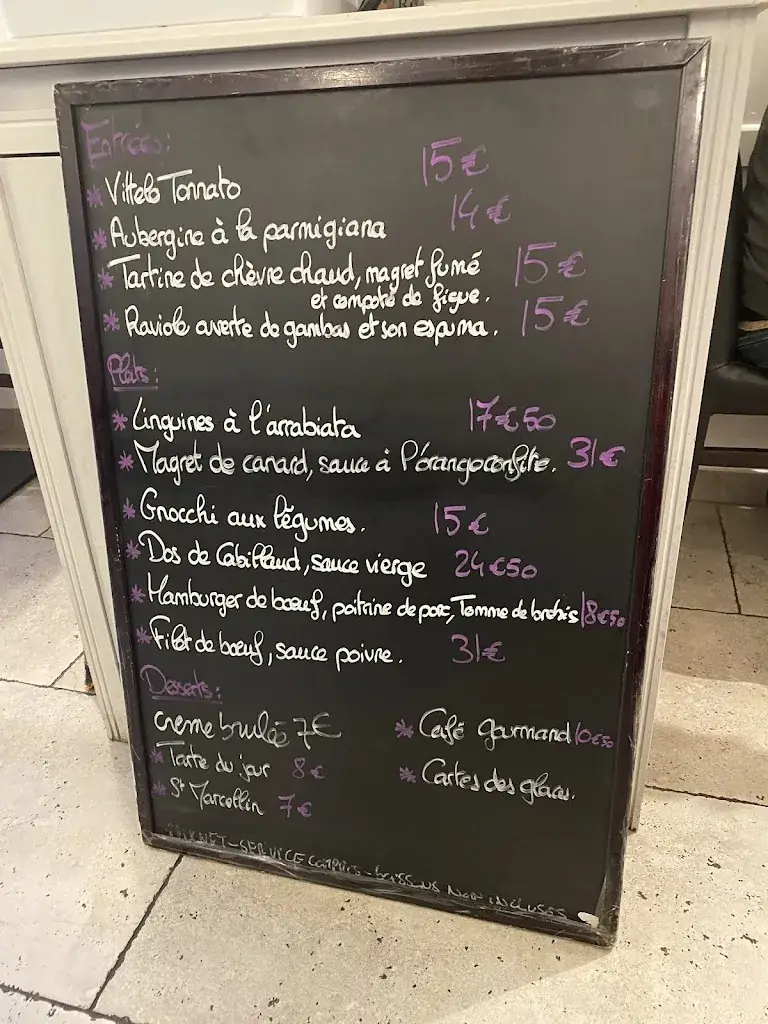 Entrées:
* Vittelo Tonnato 15€
* Aubergine à la parmigiana 14€
* Tartine de chèvre chaud, magret fumé 15€
et compoté de figue.
* Raviole ouverte de gambas et son espuma. 15€
Plats:
* Linguines à l'arrabiata 17€50
* Magret de canard, sauce à l'orange confite. 31€
* Gnocchi aux légumes. 15€
* Dos de Cabillaud, sauce vierge 24€50
* Hamburger de bœuf, poitrine de porc, Tomme de brebis 18€50
* Filet de bœuf, sauce poivre. 31€
Desserts:
creme brulée 7€
* Tarte du jour 8€
* St Marcellin 7€
* Café gourmand 10€50
* Cartes des glaces.
PRIX NET - SERVICE COMPRIS - BOISSONS NON INCLUSES